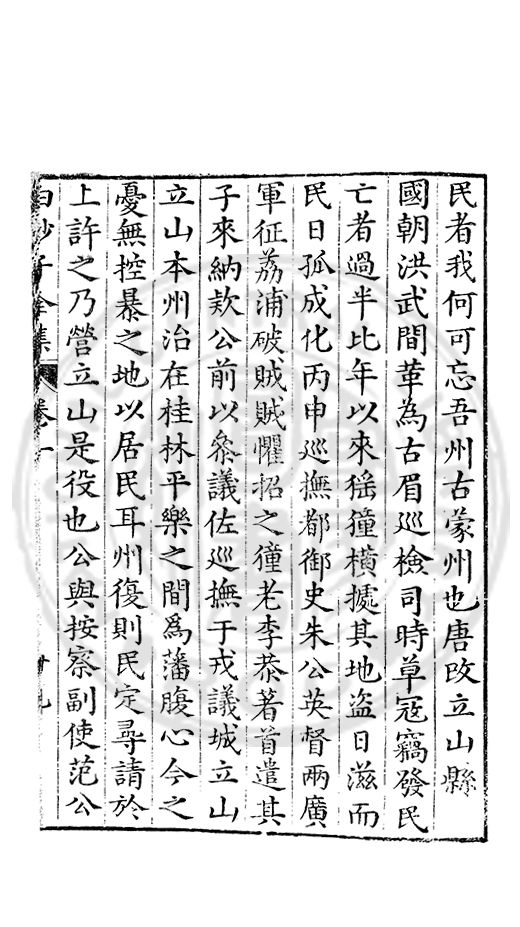 民者我何可忘吾州古蒙州也唐改立山縣
國朝洪武間革為古眉巡檢司時草冦竊發民
亡者過半比年以來猺獞橫據其地盗日滋而
民日孤成化丙申巡撫都御史朱公英督兩廣
軍征荔浦破賊賊懼招之獞老李恭著首遣其
子來納欵公前以叅議佐巡撫于戎議城立山
立山本州治在桂林平樂之間爲藩腹心今之
憂無控暴之地以居民耳州復則民定尋請於
上許之乃營立山是役也公與按察副使范公
白沙子全集 卷一